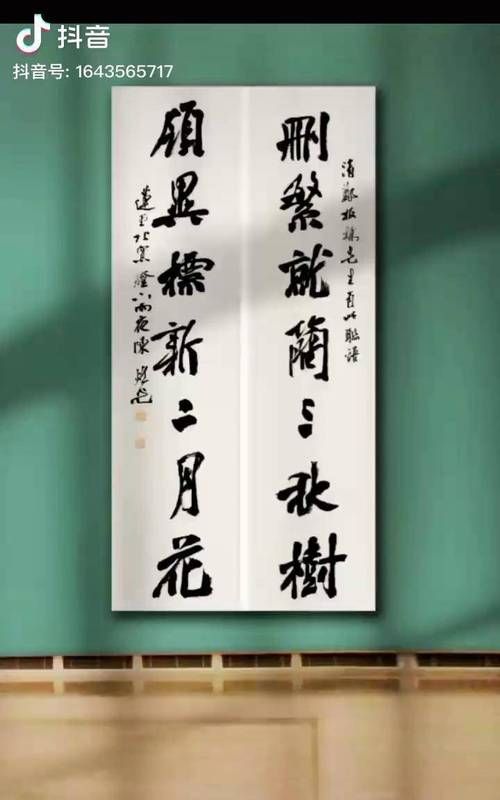 抖音
抖音号: 1643565717
刪繁就簡三秋樹
清鄭板橋先生有此聯語
領異標新二月花
北窗燈下雨夜陳